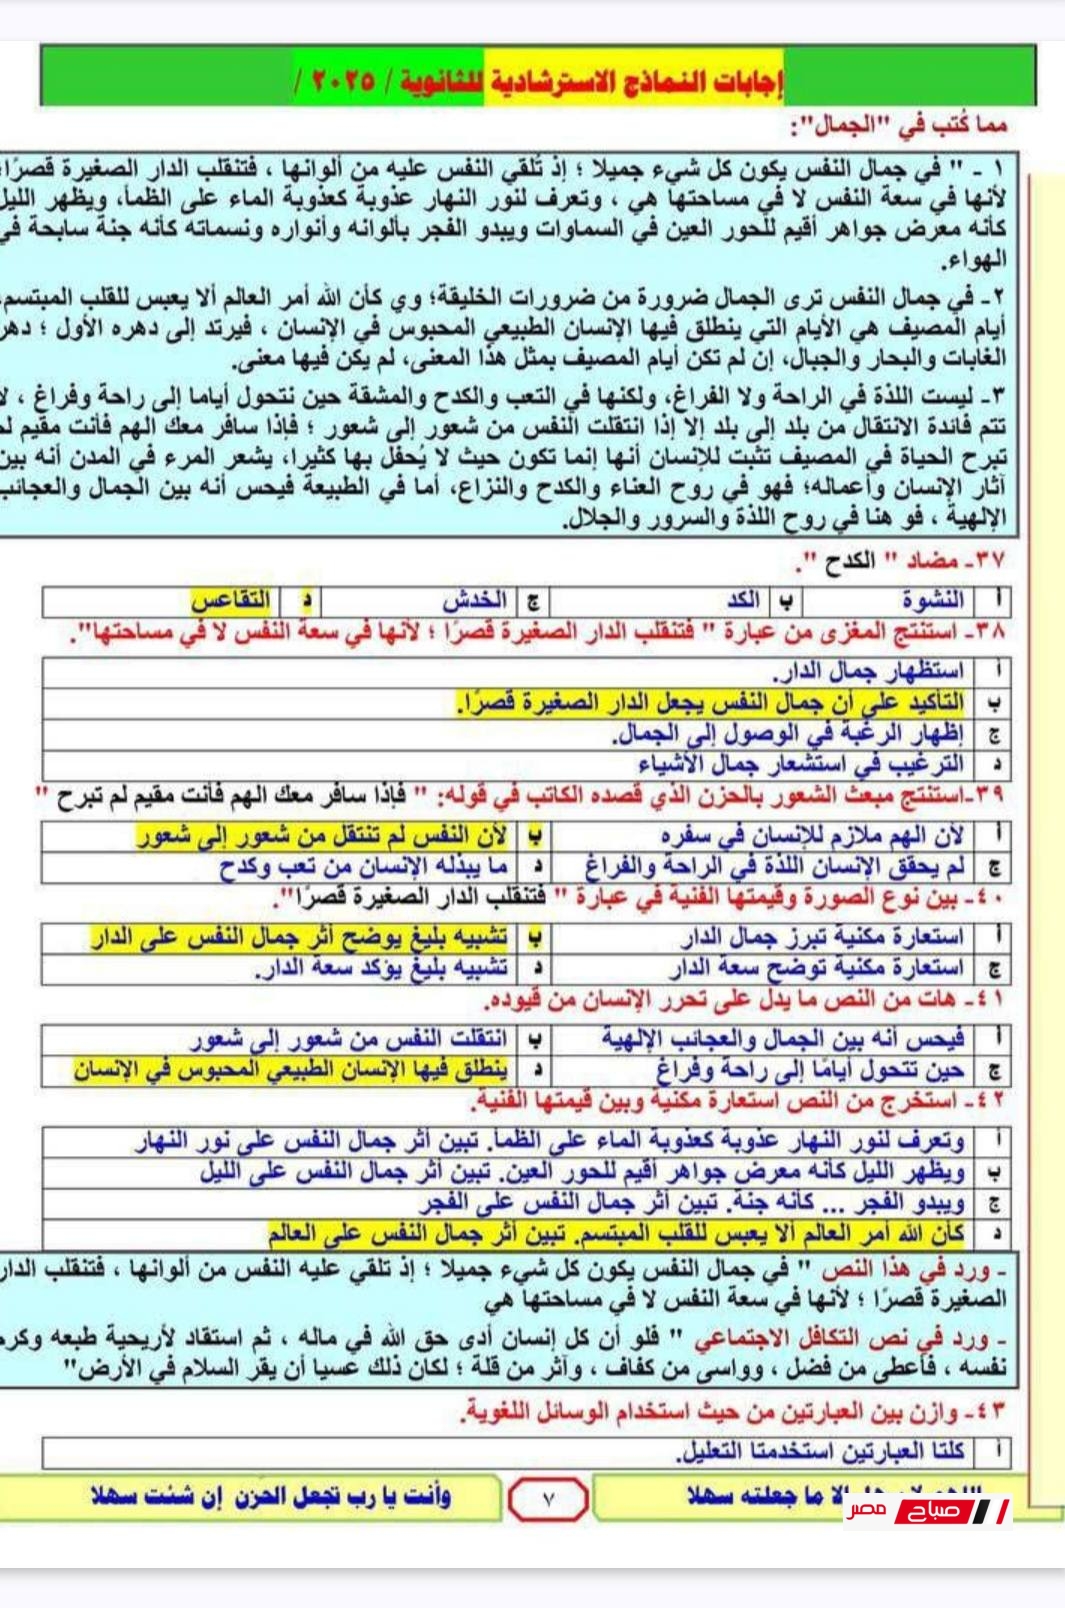 إجابات النماذج الاسترشادية للثانوية / ٢٠٢٥ /
مما كُتب في "الجمال":
١ - " في جمال النفس يكون كل شيء جميلا ؛ إذ تُلقي النفس عليه من ألوانها ، فتنقلب الدار الصغيرة قصرًا؛
لأنها في سعة النفس لا في مساحتها هي ، وتعرف لنور النهار عذوبة كعذوبة الماء على الظمأ، ويظهر الليل
كأنه معرض جواهر أقيم للحور العين في السماوات ويبدو الفجر بألوانه وأنواره ونسماته كأنه جنة سابحة في
الهواء.
٢- في جمال النفس ترى الجمال ضرورة من ضرورات الخليقة؛ وي كأن الله أمر العالم ألا يعبس للقلب المبتسم.
أيام المصيف هي الأيام التي ينطلق فيها الإنسان الطبيعي المحبوس في الإنسان ، فيرتد إلى دهره الأول ؛ دهر
الغابات والبحار والجبال، إن لم تكن أيام المصيف بمثل هذا المعنى، لم يكن فيها معنى.
٣- ليست اللذة في الراحة ولا الفراغ، ولكنها في التعب والكدح والمشقة حين نتحول أياما إلى راحة وفراغ ، لا
تتم فائدة الانتقال من بلد إلى بلد إلا إذا انتقلت النفس من شعور إلى شعور ؛ فإذا سافر معك الهم فأنت مقيم لم
تبرح الحياة في المصيف تثبت للإنسان أنها إنما تكون حيث لا يُحفل بها كثيرا، يشعر المرء في المدن أنه بين
آثار الإنسان وأعماله؛ فهو في روح العناء والكدح والنزاع، أما في الطبيعة فيحس أنه بين الجمال والعجائب
الإلهية ، فو هنا في روح اللذة والسرور والجلال.
٣٧- مضاد " الكدح ".
أ النشوة ب الكد ج الخدش د التقاعس
٣٨- استنتج المغزى من عبارة " فتنقلب الدار الصغيرة قصرًا ؛ لأنها في سعة النفس لا في مساحتها".
أ استظهار جمال الدار.
ب التأكيد على أن جمال النفس يجعل الدار الصغيرة قصرًا.
ج إظهار الرغبة في الوصول إلى الجمال.
د الترغيب في استشعار جمال الأشياء
٣٩-استنتج مبعث الشعور بالحزن الذي قصده الكاتب في قوله: " فإذا سافر معك الهم فأنت مقيم لم تبرح "
أ لأن الهم ملازم للإنسان في سفره ب لأن النفس لم تنتقل من شعور إلى شعور
ج لم يحقق الإنسان اللذة في الراحة والفراغ د ما يبذله الإنسان من تعب وكدح
٤٠- بين نوع الصورة وقيمتها الفنية في عبارة " فتنقلب الدار الصغيرة قصرًا".
أ استعارة مكنية تبرز جمال الدار ب تشبيه بليغ يوضح أثر جمال النفس على الدار
ج استعارة مكنية توضح سعة الدار د تشبيه بليغ يؤكد سعة الدار.
٤١- هات من النص ما يدل على تحرر الإنسان من قيوده.
أ فيحس أنه بين الجمال والعجائب الإلهية ب انتقلت النفس من شعور إلى شعور
ج حين تتحول أيامًا إلى راحة وفراغ د ينطلق فيها الإنسان الطبيعي المحبوس في الإنسان
٤٢- استخرج من النص استعارة مكنية وبين قيمتها الفنية.
أ وتعرف لنور النهار عذوبة كعذوبة الماء على الظمأ. تبين أثر جمال النفس على نور النهار
ب ويظهر الليل كأنه معرض جواهر أقيم للحور العين. تبين أثر جمال النفس على الليل
ج ويبدو الفجر ... كأنه جنة. تبين أثر جمال النفس على الفجر
د كأن الله أمر العالم ألا يعبس للقلب المبتسم. تبين أثر جمال النفس على العالم
- ورد في هذا النص " في جمال النفس يكون كل شيء جميلا ؛ إذ تلقي عليه النفس من ألوانها ، فتنقلب الدار
الصغيرة قصرًا ؛ لأنها في سعة النفس لا في مساحتها هي
- ورد في نص التكافل الاجتماعي " فلو أن كل إنسان أدى حق الله في ماله ، ثم استقاد لأريحية طبعه وكرم
نفسه ، فأعطى من فضل ، وواسى من كفاف ، وآثر من قلة ؛ لكان ذلك عسيا أن يقر السلام في الأرض"
٤٣- وازن بين العبارتين من حيث استخدام الوسائل اللغوية.
أ كلتا العبارتين استخدمتا التعليل.
اللهم لا سهل إلا ما جعلته سهلا ٧ وأنت يا رب تجعل الحزن إن شئت سهلا
صباح مصر